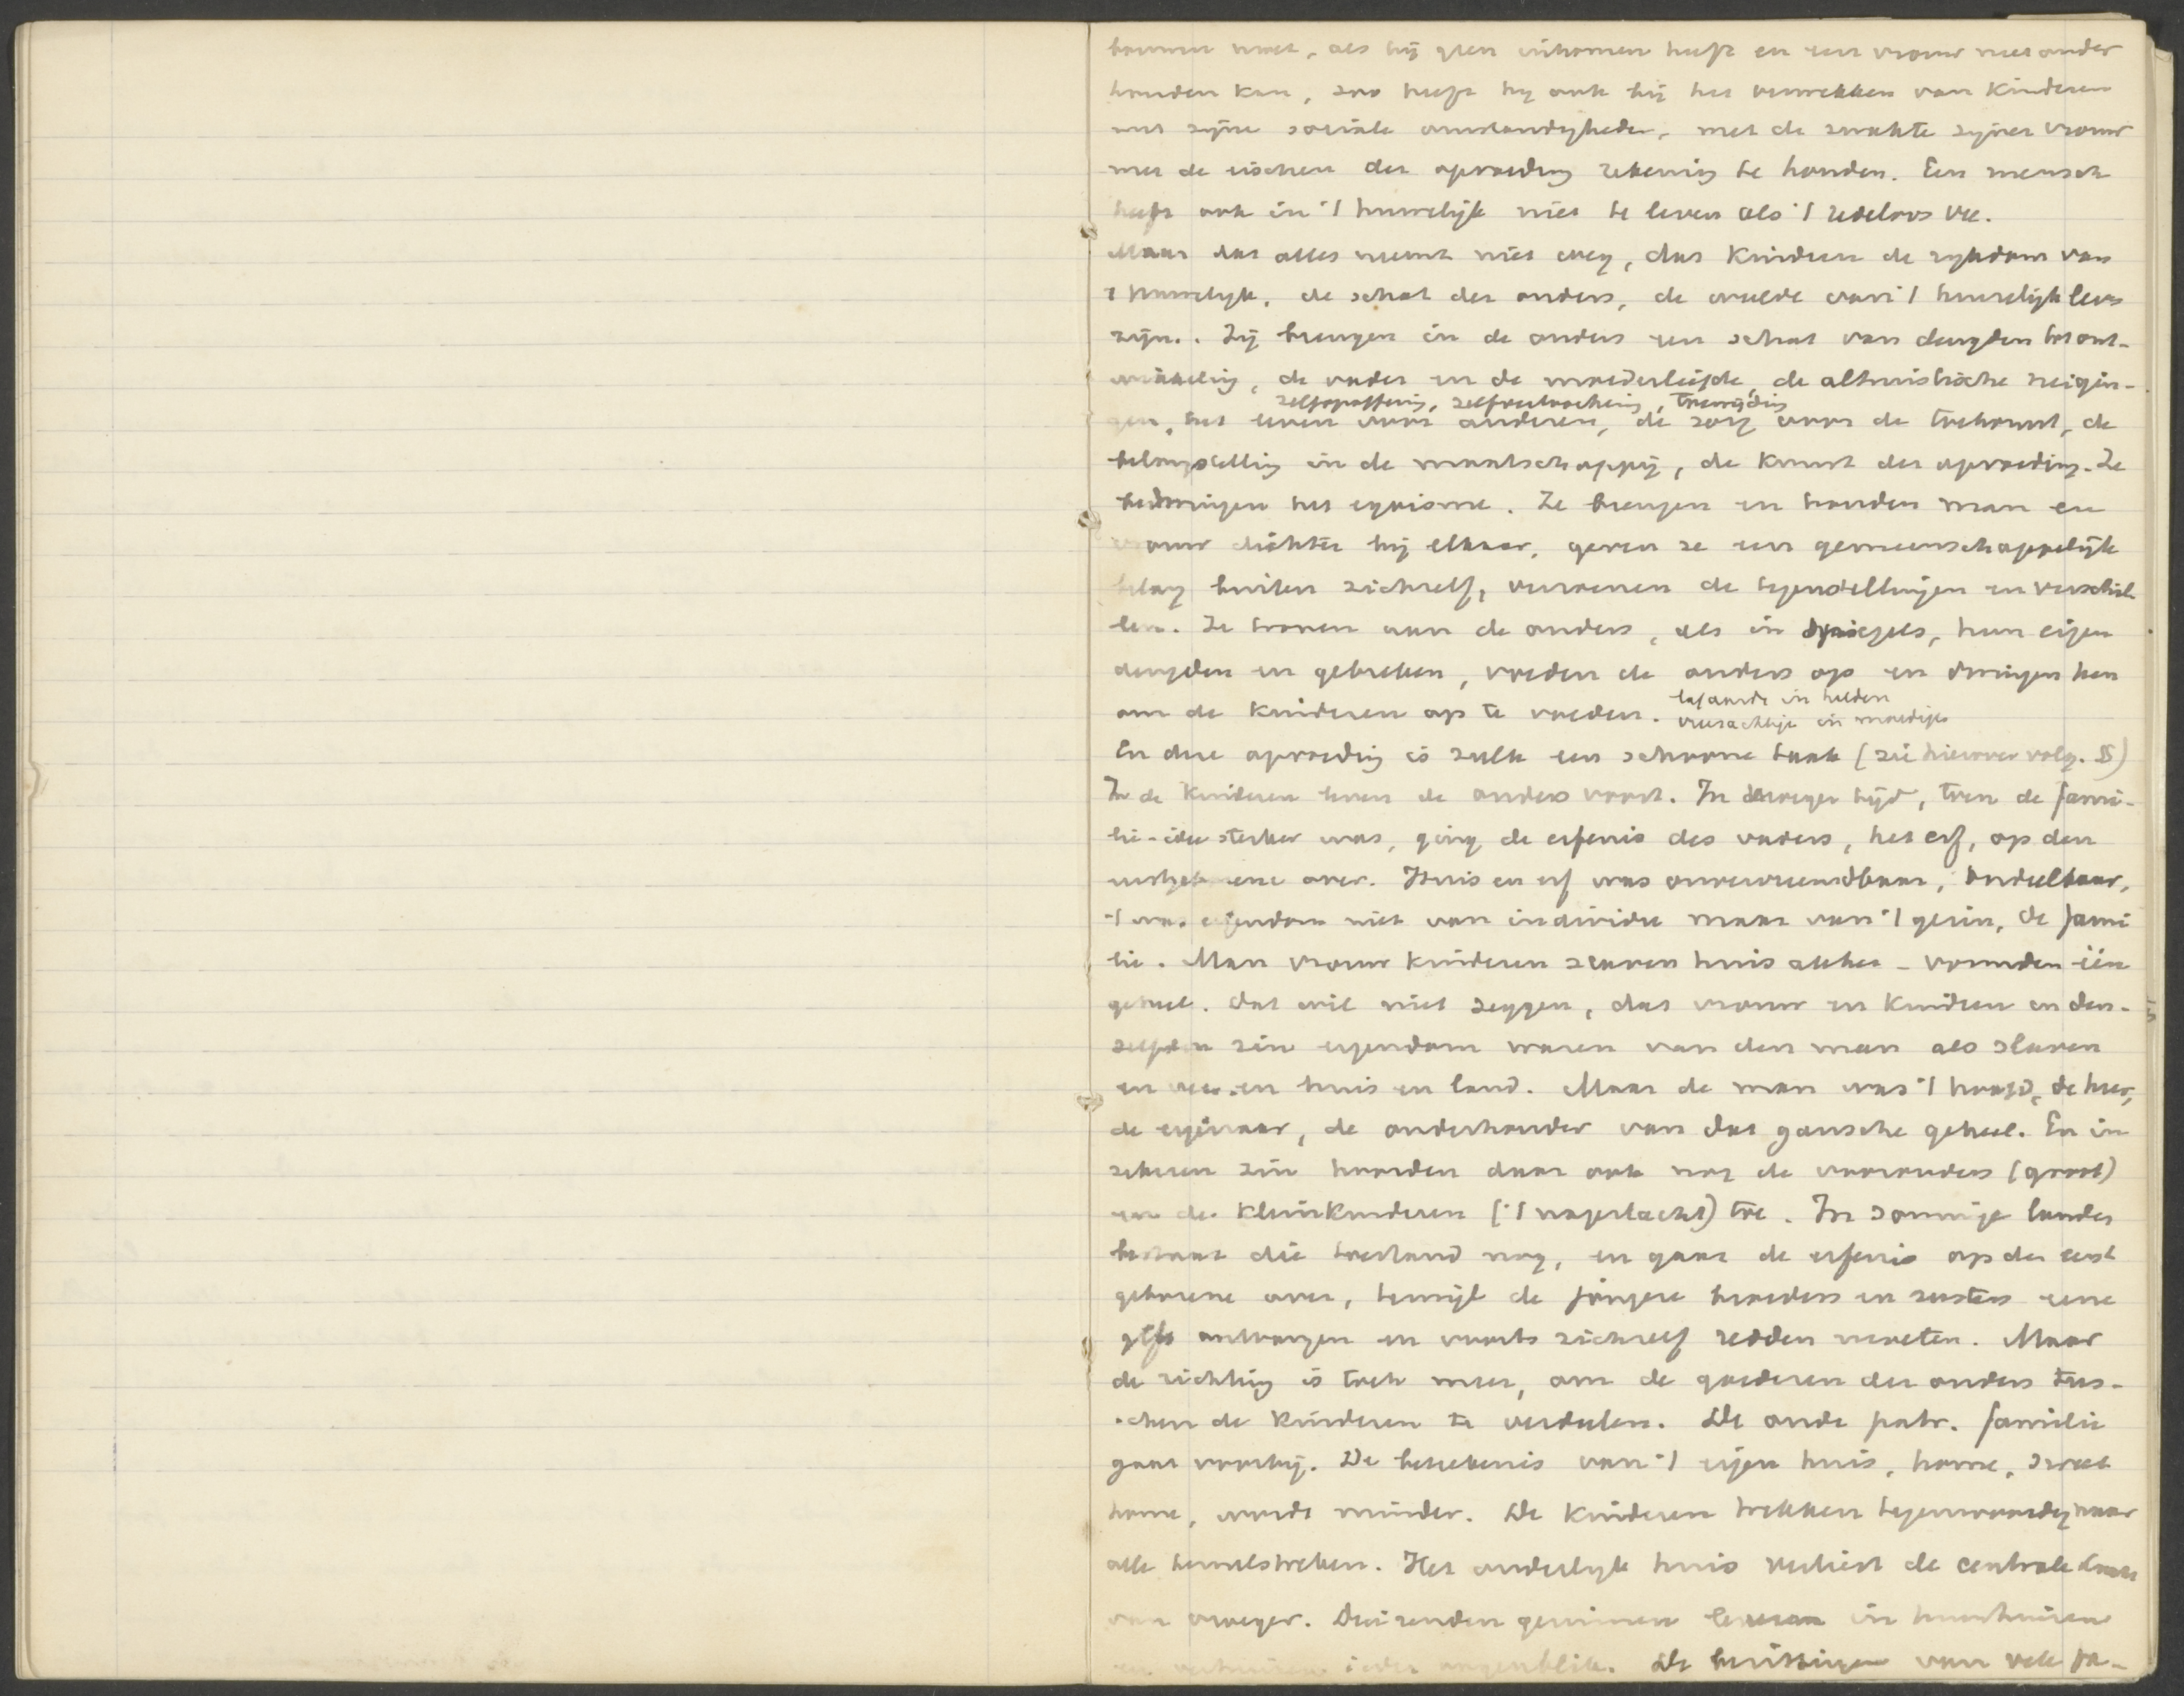 komen moet, als hij geen inkomen heeft en een vrouw niet onder
houden kan, zoo heeft hij ook bij het verwekken van kinderen
met zijne sociale omstandigheden, met de zwakte zijner vrouw
met de eischen der opvoeding rekening te houden. Een mensch
heeft ook in 't huwelijk niet te leven als 't redeloos vee.
Maar dat alles neemt niet weg, dat kinderen de rijkdom van
't huwelijk, de schat der ouders, de weelde van 't huwelijksleven
zijn. Zij brengen in de ouders een schat van deugden tot ont-
wikkeling, de vader en de moederliefde, de altruistische neigin-
zelfopoffering, zelfverloochening, toewijding
gen, het leven voor anderen, de zorg voor de toekomst, de
belangstelling in de maatschappij, de kunst der opvoeding. Ze
bedwingen het egoisme. Ze brengen en houden man en
vrouw dichter bij elkaar, geven ze een gemeenschappelijk
belang buiten zichzelf, verzoenen de tegenstellingen en verschil
len. Ze toonen aan de ouders, als in spiegels, hun eigen
deugden en gebreken, voeden de ouders op en dwingen hen
om de kinderen op te voeden. lafaards in helden
vreesachtige in moedige
En die opvoeding is zulk een schoone taak (zie hierover volg. §)
In de kinderen leven de ouders voort. In vroeger tijd, toen de fami-
lie-idee sterker was, ging de erfenis des vaders, het erf, op den
eerstgeborene over. Huis en erf was onvervreemdbaar, ondeelbaar,
't was eigendom niet van individu maar van 't gezin, de fami
lie. Man vrouw kinderen slaven huis akker - vormden één
geheel. Dat wil niet zeggen, dat vrouw en kinderen in den-
zelfden zin eigendom waren van den man als slaven
en vee en huis en land. Maar de man was 't hoofd, de heer,
de eigenaar, de onderhouder van dat gansche geheel. En in
zekeren zin hoorden daar ook nog de voorouders (groot)
en de kleinkinderen ('t nageslacht) toe. In sommige landen
bestaat die toestand nog, en gaat de erfenis op den eerst
geborene over, terwijl de jongere broeders en zusters eene
gift ontvangen en voorts zichzelf redden moeten. Maar
de richting is toch meer, om de goederen der ouders tus-
schen de kinderen te verdeelen. De oude patr. familie
gaat voorbij. De beteekenis van 't eigen huis, home, sweet
home, wordt minder. De kinderen trekken tegenwoordig naar
alle hemelstreken. Het ouderlijk huis verliest de centrale
van vroeger. Duizenden gezinnen leven in huurhuizen
en verhuizen ieder oogenblik. De van vele fa-